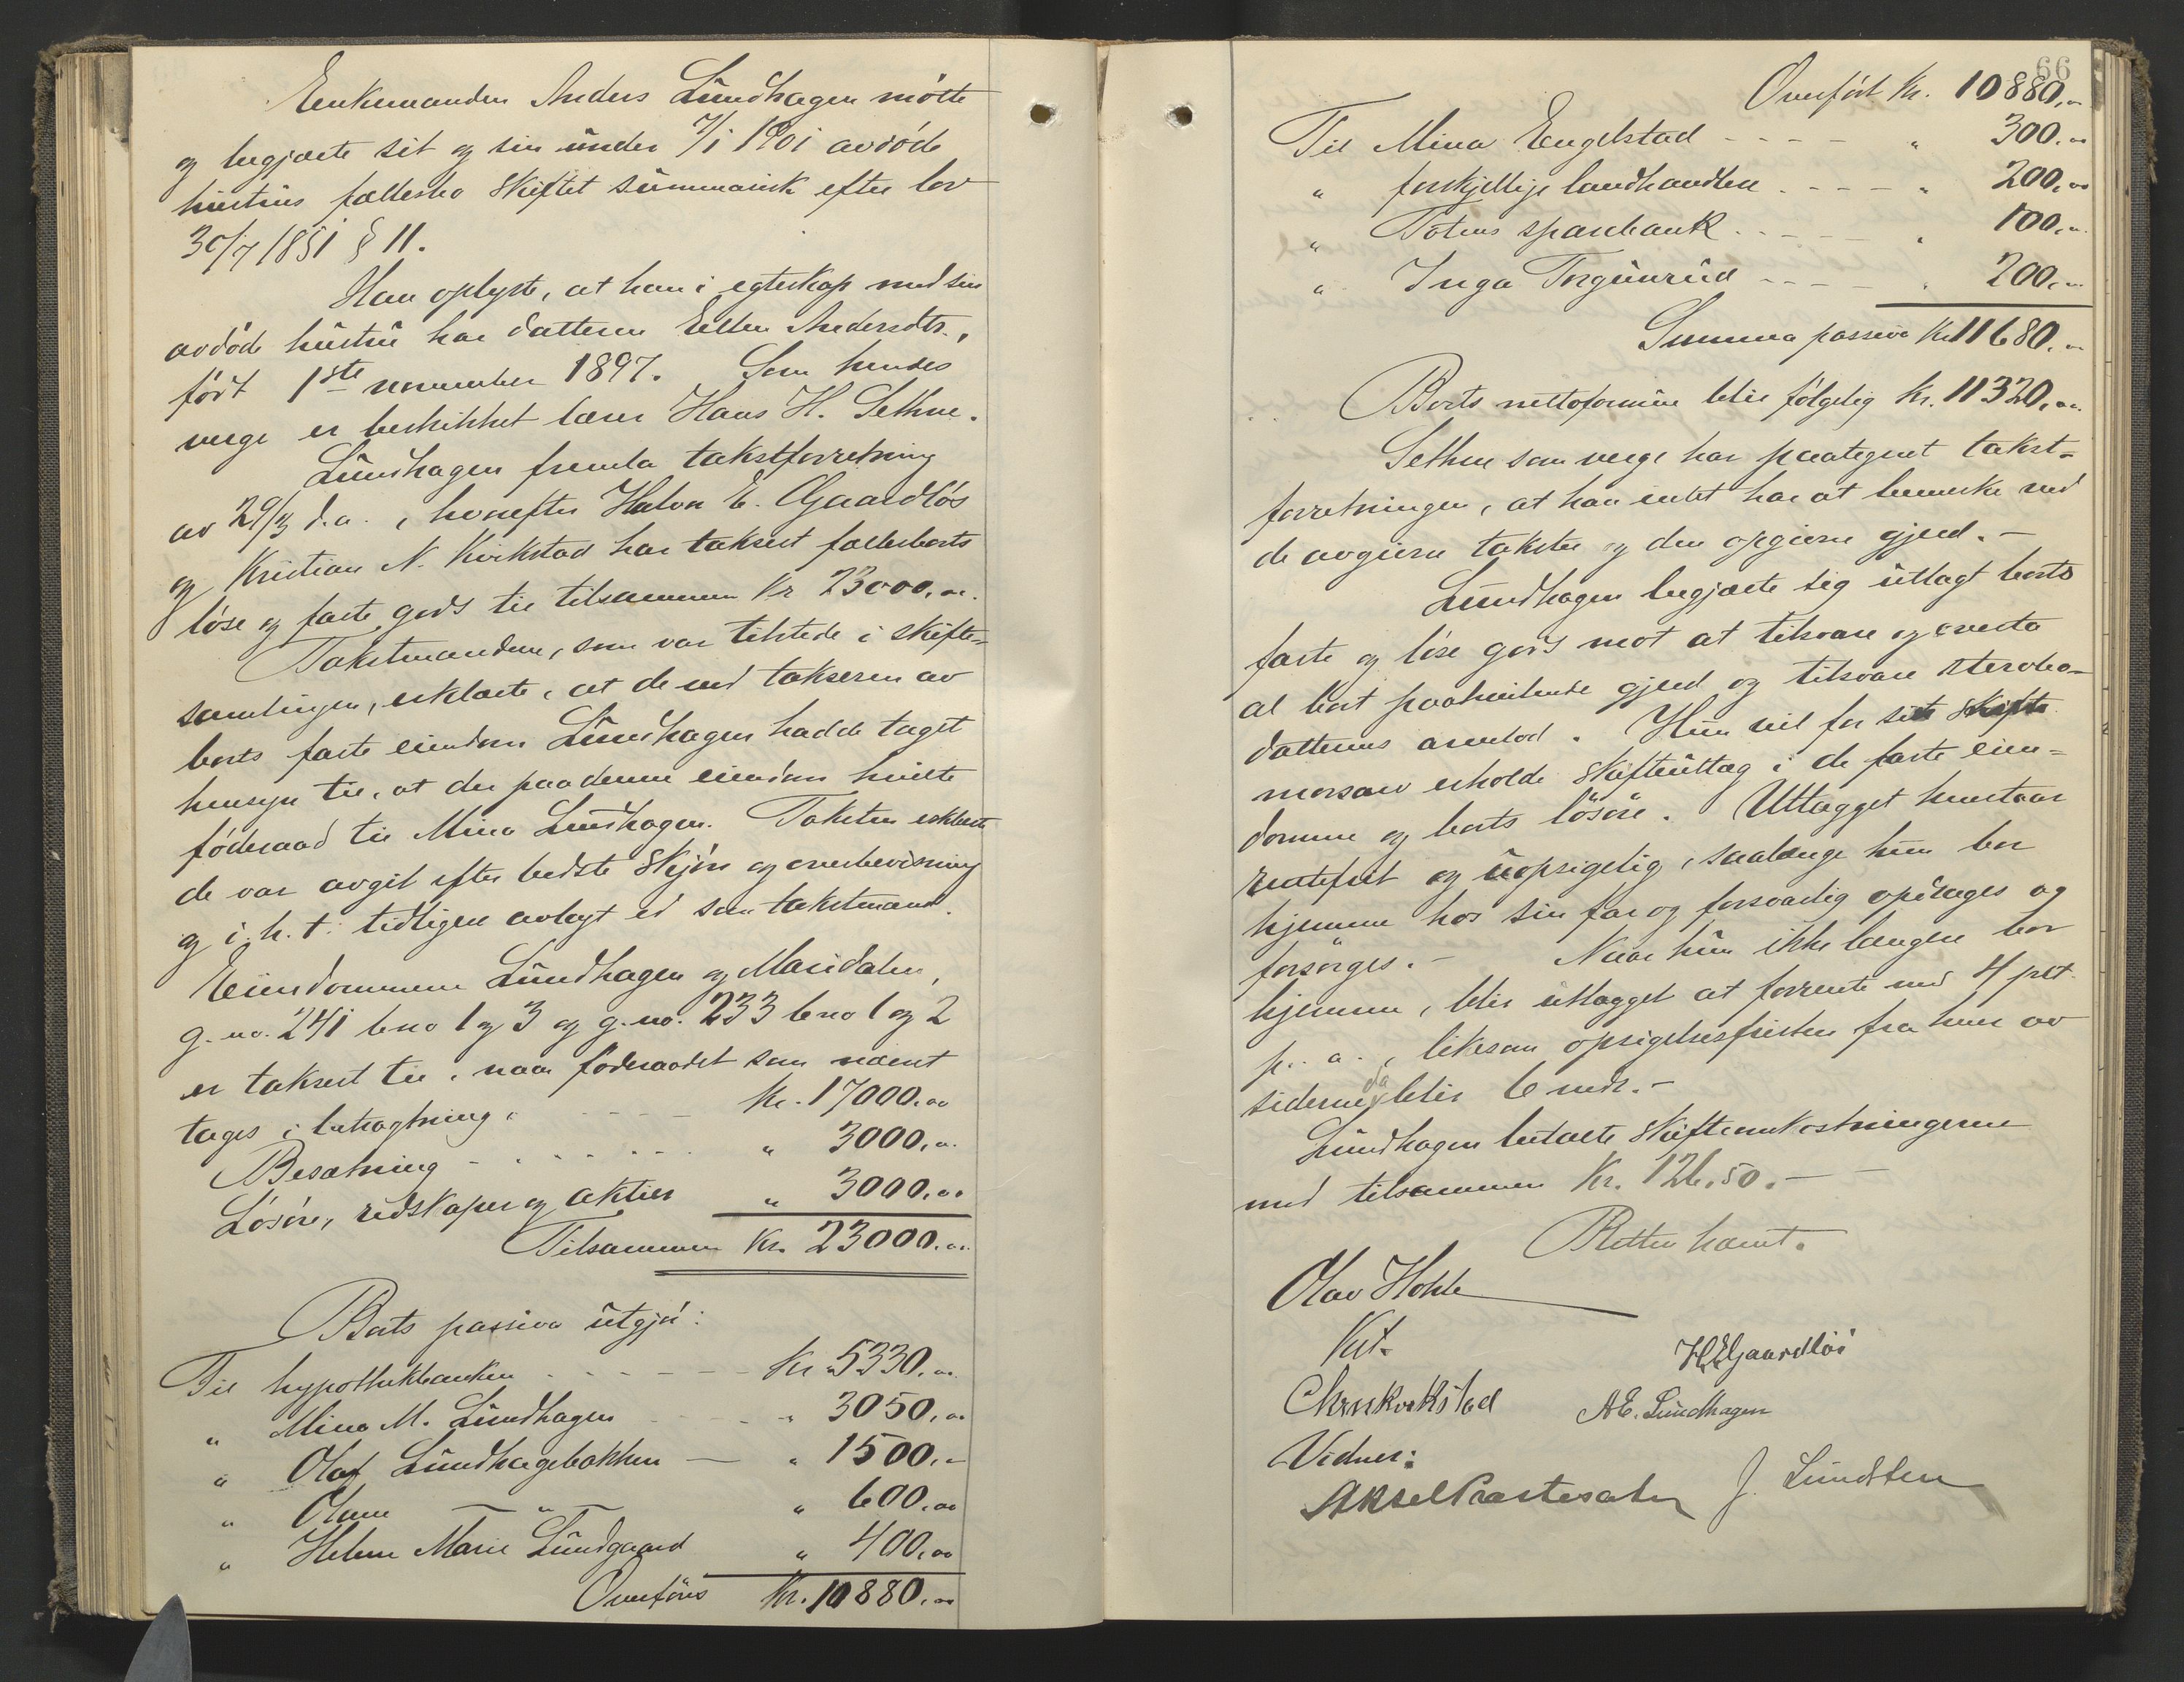 Enkemanden Anders Lundhagen møtte
og begjærte sit og sin under 7/1 1901 avdøde
hustrus fællesbo skiftet summarisk efter lov
30/7 1851 § 11.
Han oplyste, at han i egteskap med sin
avdøde hustru har datteren Ellen Andersdtr.,
født 1ste november 1897. Som hendes
verge er beskikket lærer Hans H. Sethne.
Lundhagen fremla takstforretning
av 29/3 d.a., hvorefter Halvor E. Gaardløs
og Kristian N. Kvikstad har taksert fællesboets
løse og faste gods til tilsammen Kr 23000,00.
Takstmændene, som var tilstede i skifte-
samlingen, erklærte, at de ved taksten av
boets faste eiendom Lundhagen hadde taget
hensyn til, at der paa denne eiendom hvilte
føderaad til Mina Lundhagen. Taksten erklærte
de var avgit efter bedste skjøn og overbevisning
og i h. t. tidligere avlagt ed som takstmænd.
Eiendommene Lundhagen og Maridalen,
g. no. 241 b no 1 og 3 og g. no. 233 b no 1 og 2
er taksert til, naar føderaadet som nævnt
tages i betragtning, - - - - Kr. 17000.00
Besætning - - - - - - - " 3000,00
Løsøre, redskaper og aktier " 3000,00
Tilsammen Kr. 23000.00
Boets passiva utgjør:
Til hypothekbanken - - - - - Kr. 5330,00
" Mina M. Lundhagen - - - " 3050,00
" Olaf Lundhagebakken — " 1500,-
" Olava — " — " 600,00
" Helene Marie Lundgaard " 400,00
Overføres Kr. 10880,00
66
Overført Kr. 10880,00
Til Mina Engelstad - - - - " 300,00
" forskjellige landhandlere - - - - " 200,00
" Totens sparebank - - - - - " 100,00
" Inga Torgunrud - - - - " 200,00
Summa passiva Kr 11680,00
Boets nettoformue blir følgelig Kr. 11320,00.
Sethne som verge har paategnet takst-
forretningen, at han intet har at bemerke ved
de avgivne takster og den opgivne gjeld. -
Lundhagen begjærte sig utlagt boets
faste og løse gods mot at tilsvare og overta
al boet paahvilende gjeld og tilsvare stervbo-
datterens arvelod. Hun vil for sit
morsarv erholde skifteutlæg i de faste eien-
domme og boets løsøre. Utlægget henstaar
rentefrit og uopsigelig, saalænge hun bor
hjemme hos sin far og forsvarlig opdrages og
forsørges. - Naar hun ikke længere bor
hjemme, blir utlægget at forrente med 4 pct.
p. a., likesom opsigelsesfristen fra hver av
siderne da blir 6 mdr. -
Lundhagen betalte skifteomkostningerne
med tilsammen Kr. 126,50. -
Retten hævet.
Olav Hohle
Kst.
H. E. Gaardløs
Chr N Kvikstad A E. Lundhagen
Vidner:
Aksel Præstesater J. Lundsten